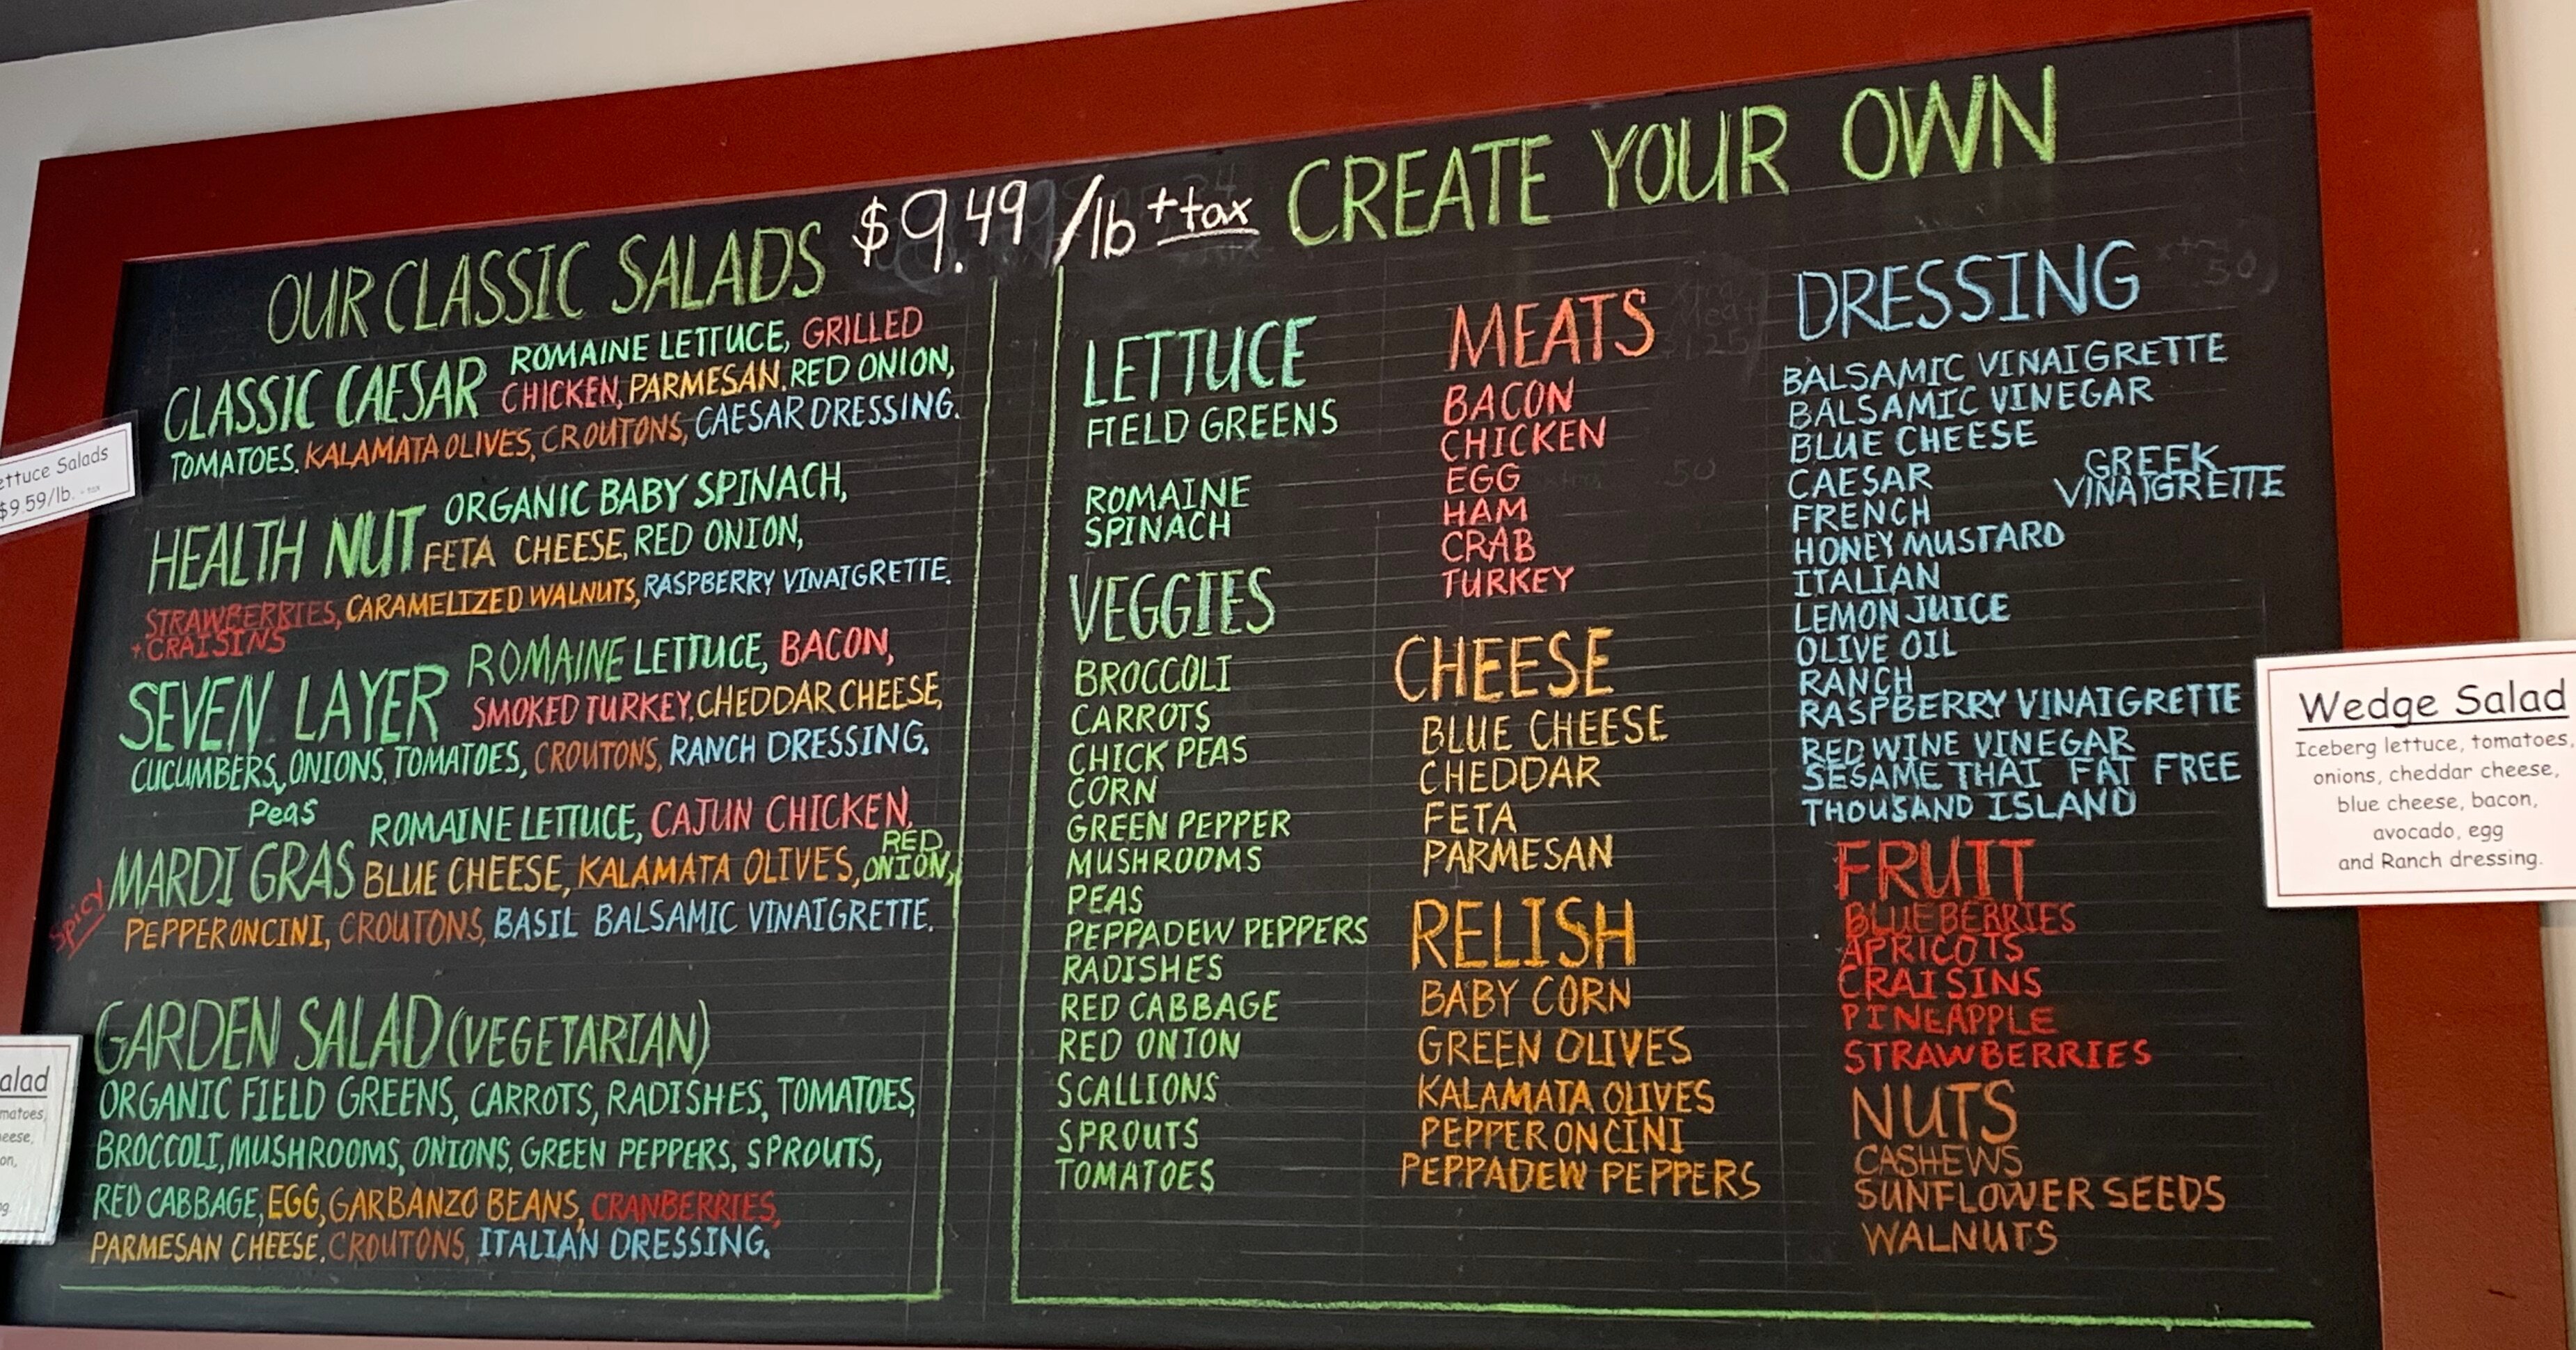 OUR CLASSIC SALADS $9.49/lb + tax CREATE YOUR OWN
CLASSIC CAESAR ROMAINE LETTUCE, GRILLED
CHICKEN, PARMESAN, RED ONION,
TOMATOES, KALAMATA OLIVES, CROUTONS, CAESAR DRESSING.
HEALTH NUT ORGANIC BABY SPINACH,
FETA CHEESE, RED ONION,
STRAWBERRIES, CARAMELIZED WALNUTS, RASPBERRY VINAIGRETTE.
+ CRAISINS
SEVEN LAYER ROMAINE LETTUCE, BACON,
SMOKED TURKEY, CHEDDAR CHEESE,
CUCUMBERS, ONIONS, TOMATOES, CROUTONS, RANCH DRESSING.
Peas
SPICY MARDI GRAS ROMAINE LETTUCE, CAJUN CHICKEN,
BLUE CHEESE, KALAMATA OLIVES, RED ONION,
PEPPERONCINI, CROUTONS, BASIL BALSAMIC VINAIGRETTE.
GARDEN SALAD (VEGETARIAN)
ORGANIC FIELD GREENS, CARROTS, RADISHES, TOMATOES,
BROCCOLI, MUSHROOMS, ONIONS, GREEN PEPPERS, SPROUTS,
RED CABBAGE, EGG, GARBANZO BEANS, CRANBERRIES,
PARMESAN CHEESE, CROUTONS, ITALIAN DRESSING.
LETTUCE
FIELD GREENS
ROMAINE
SPINACH
VEGGIES
BROCCOLI
CARROTS
CHICK PEAS
CORN
GREEN PEPPER
MUSHROOMS
PEAS
PEPPADEW PEPPERS
RADISHES
RED CABBAGE
RED ONION
SCALLIONS
SPROUTS
TOMATOES
MEATS
BACON
CHICKEN
EGG
HAM
CRAB
TURKEY
CHEESE
BLUE CHEESE
CHEDDAR
FETA
PARMESAN
RELISH
BABY CORN
GREEN OLIVES
KALAMATA OLIVES
PEPPERONCINI
PEPPADEW PEPPERS
DRESSING
BALSAMIC VINAIGRETTE
BALSAMIC VINEGAR
BLUE CHEESE
CAESAR
FRENCH
GREEK
VINAIGRETTE
HONEY MUSTARD
ITALIAN
LEMON JUICE
OLIVE OIL
RANCH
RASPBERRY VINAIGRETTE
RED WINE VINEGAR
SESAME THAI FAT FREE
THOUSAND ISLAND
FRUIT
BLUEBERRIES
APRICOTS
CRAISINS
PINEAPPLE
STRAWBERRIES
NUTS
CASHEWS
SUNFLOWER SEEDS
WALNUTS
Wedge Salad
Iceberg lettuce, tomatoes,
onions, cheddar cheese,
blue cheese, bacon,
avocado, egg
and Ranch dressing.
ettuce Salads
$9.59/lb. + tax
alad
matoes,
eese,
on,